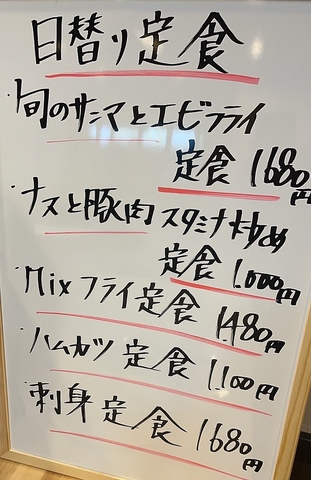 日替り定食
・旬のサンマとエビフライ
定食 1680円
・ナスと豚肉スタミナ炒め
定食 1.000円
・Mixフライ定食 1480円
・ハムカツ定食 1100円
・刺身定食 1680円